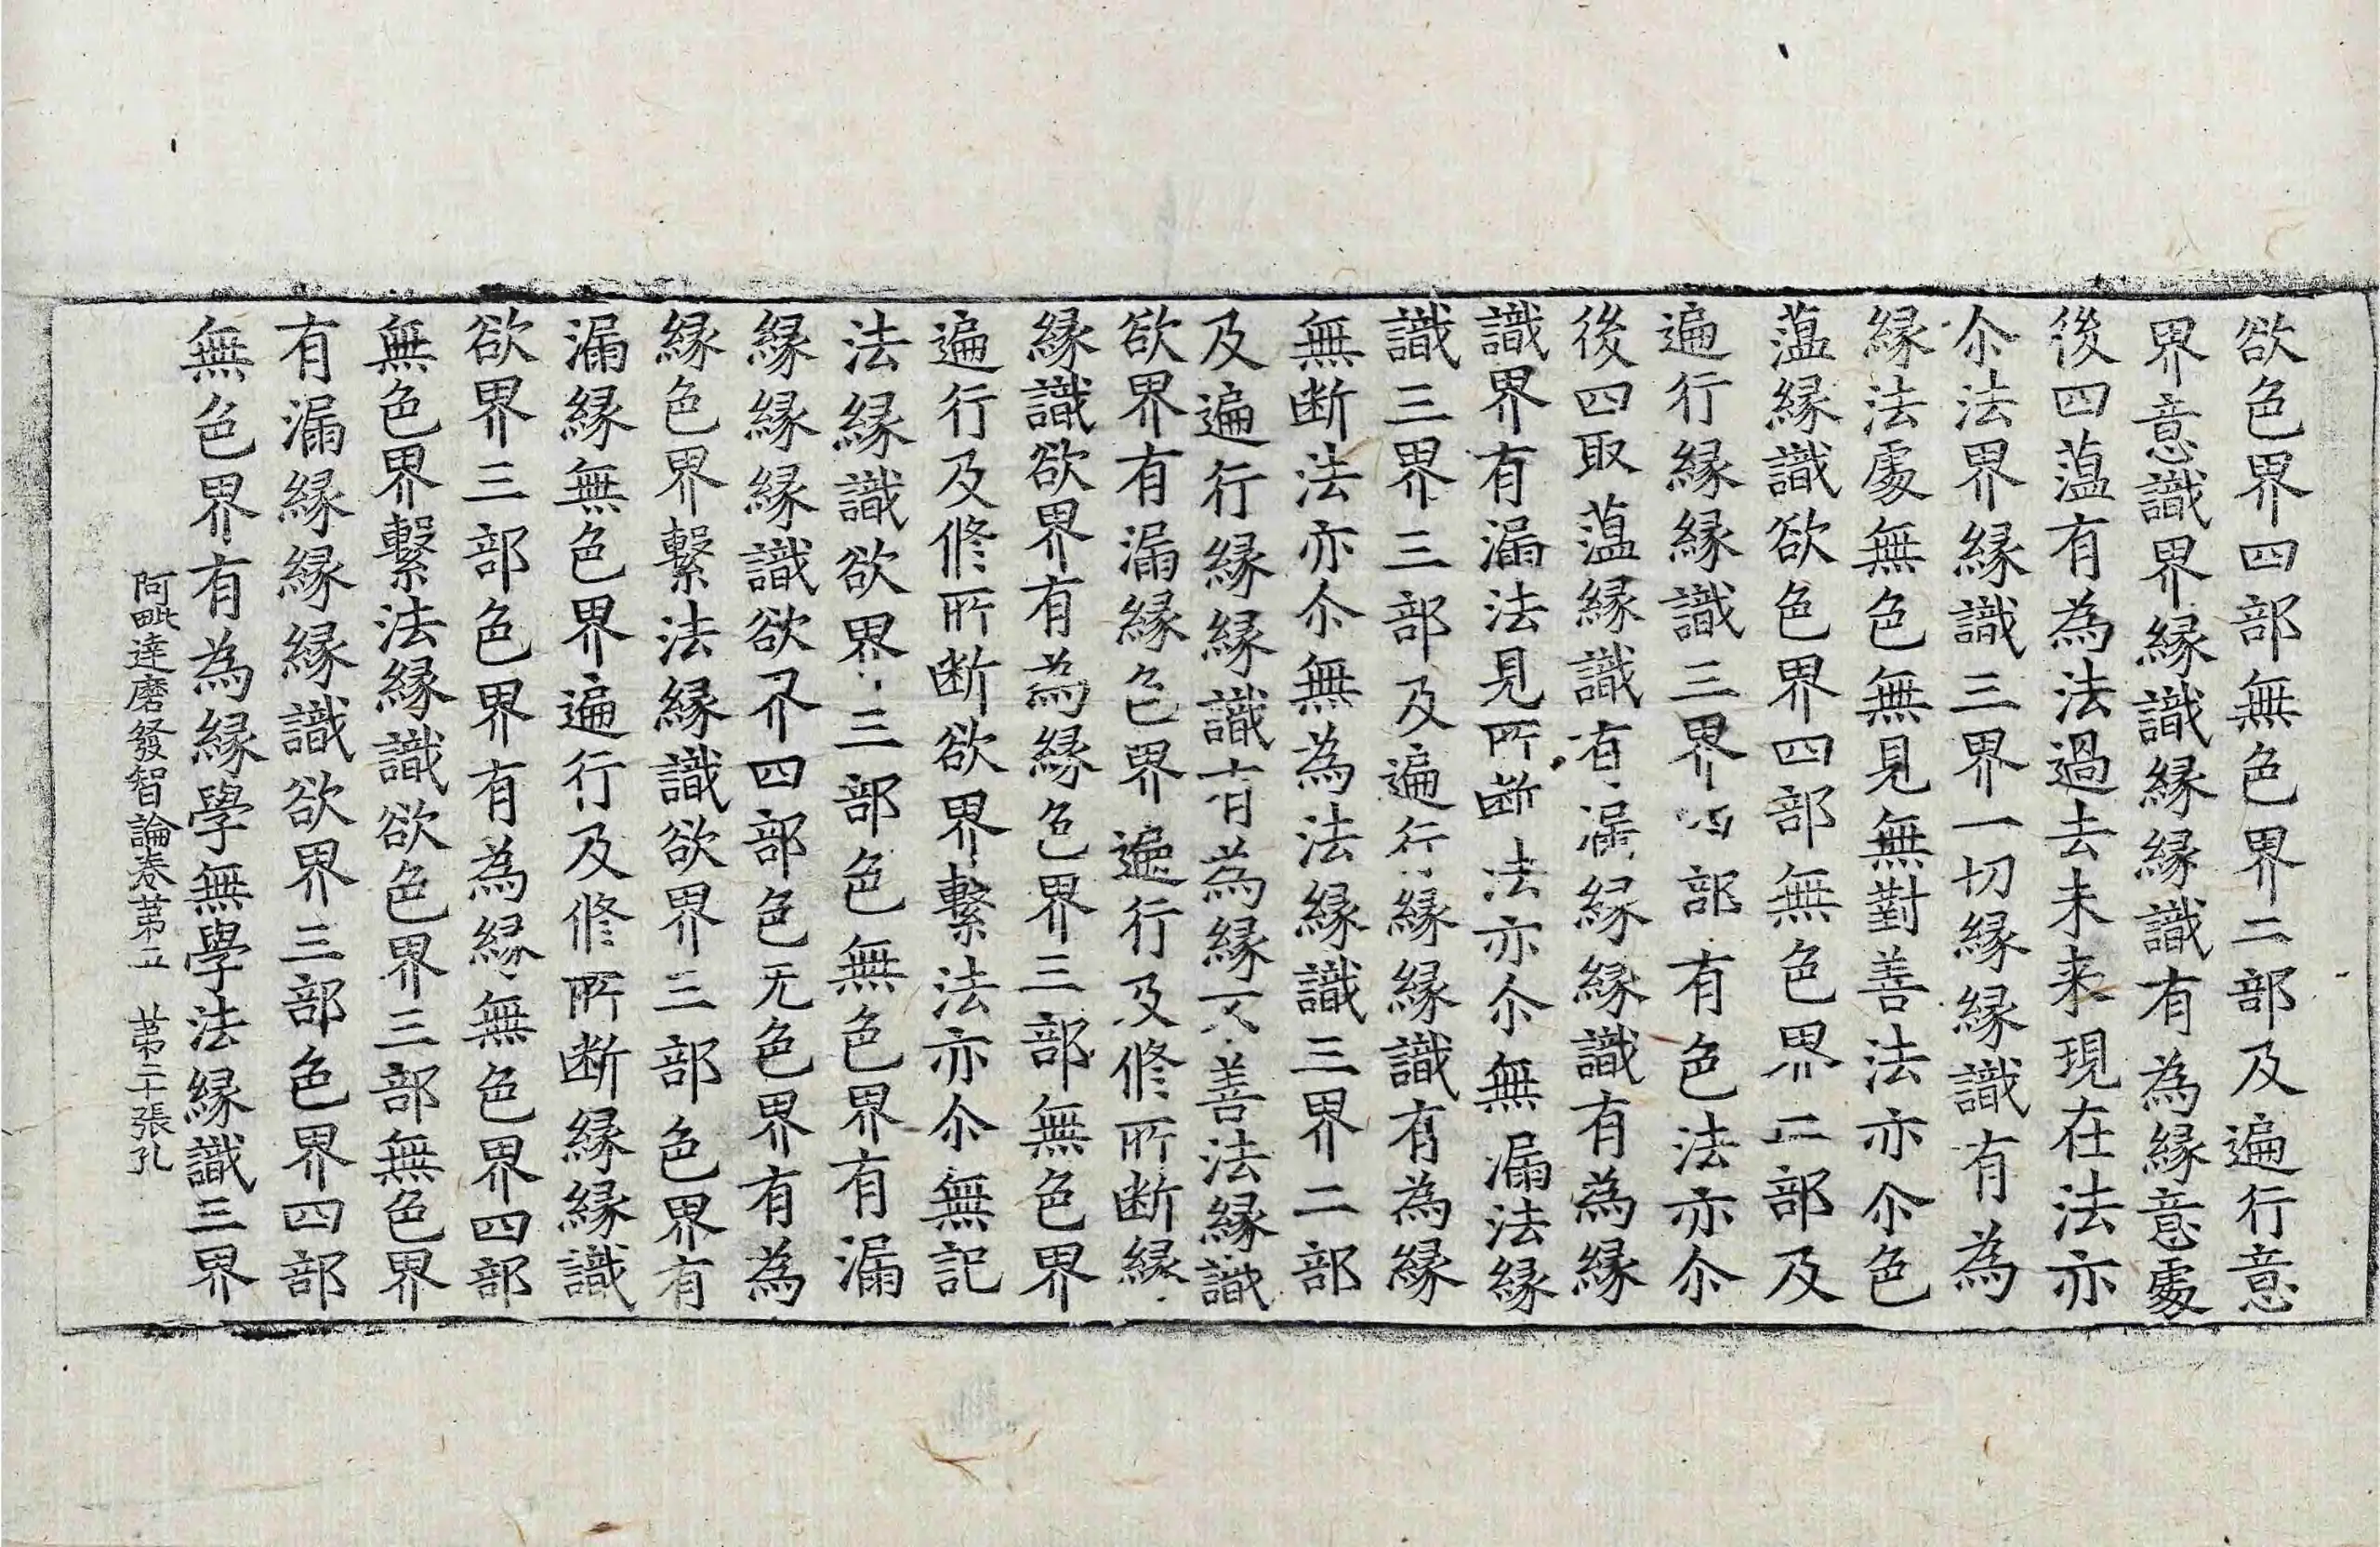 欲色界四部無色界二部及遍行意
界意識界縁識縁縁識有為縁意處
後四薀有為法過去未来現在法亦
尒法界縁識三界一切縁縁識有為
縁法處無色無見無對善法亦尒色
薀縁識欲色界四部無色界二部及
遍行縁縁識三界四部有色法亦尒
後四取薀縁識有漏縁縁識有為縁
識界有漏法見所断法亦尒無漏法縁
識三界三部及遍行縁縁識有為縁
無断法亦尒無為法縁識三界二部
及遍行縁縁識有為縁不善法縁識
欲界有漏縁色界遍行及修所断縁
縁識欲界有為縁色界三部無色界
遍行及修所断欲界繫法亦尒無記
法縁識欲界三部色無色界有漏
縁縁縁識欲界四部色无色界有為
縁色界繫法縁識欲界三部色界有
漏縁無色界遍行及修所断縁縁識
欲界三部色界有為縁無色界四部
無色界繫法縁識欲色界三部無色界
有漏縁縁縁識欲界三部色界四部
無色界有為縁學無學法縁識三界
阿毗達磨發智論卷苐五　苐二十張孔